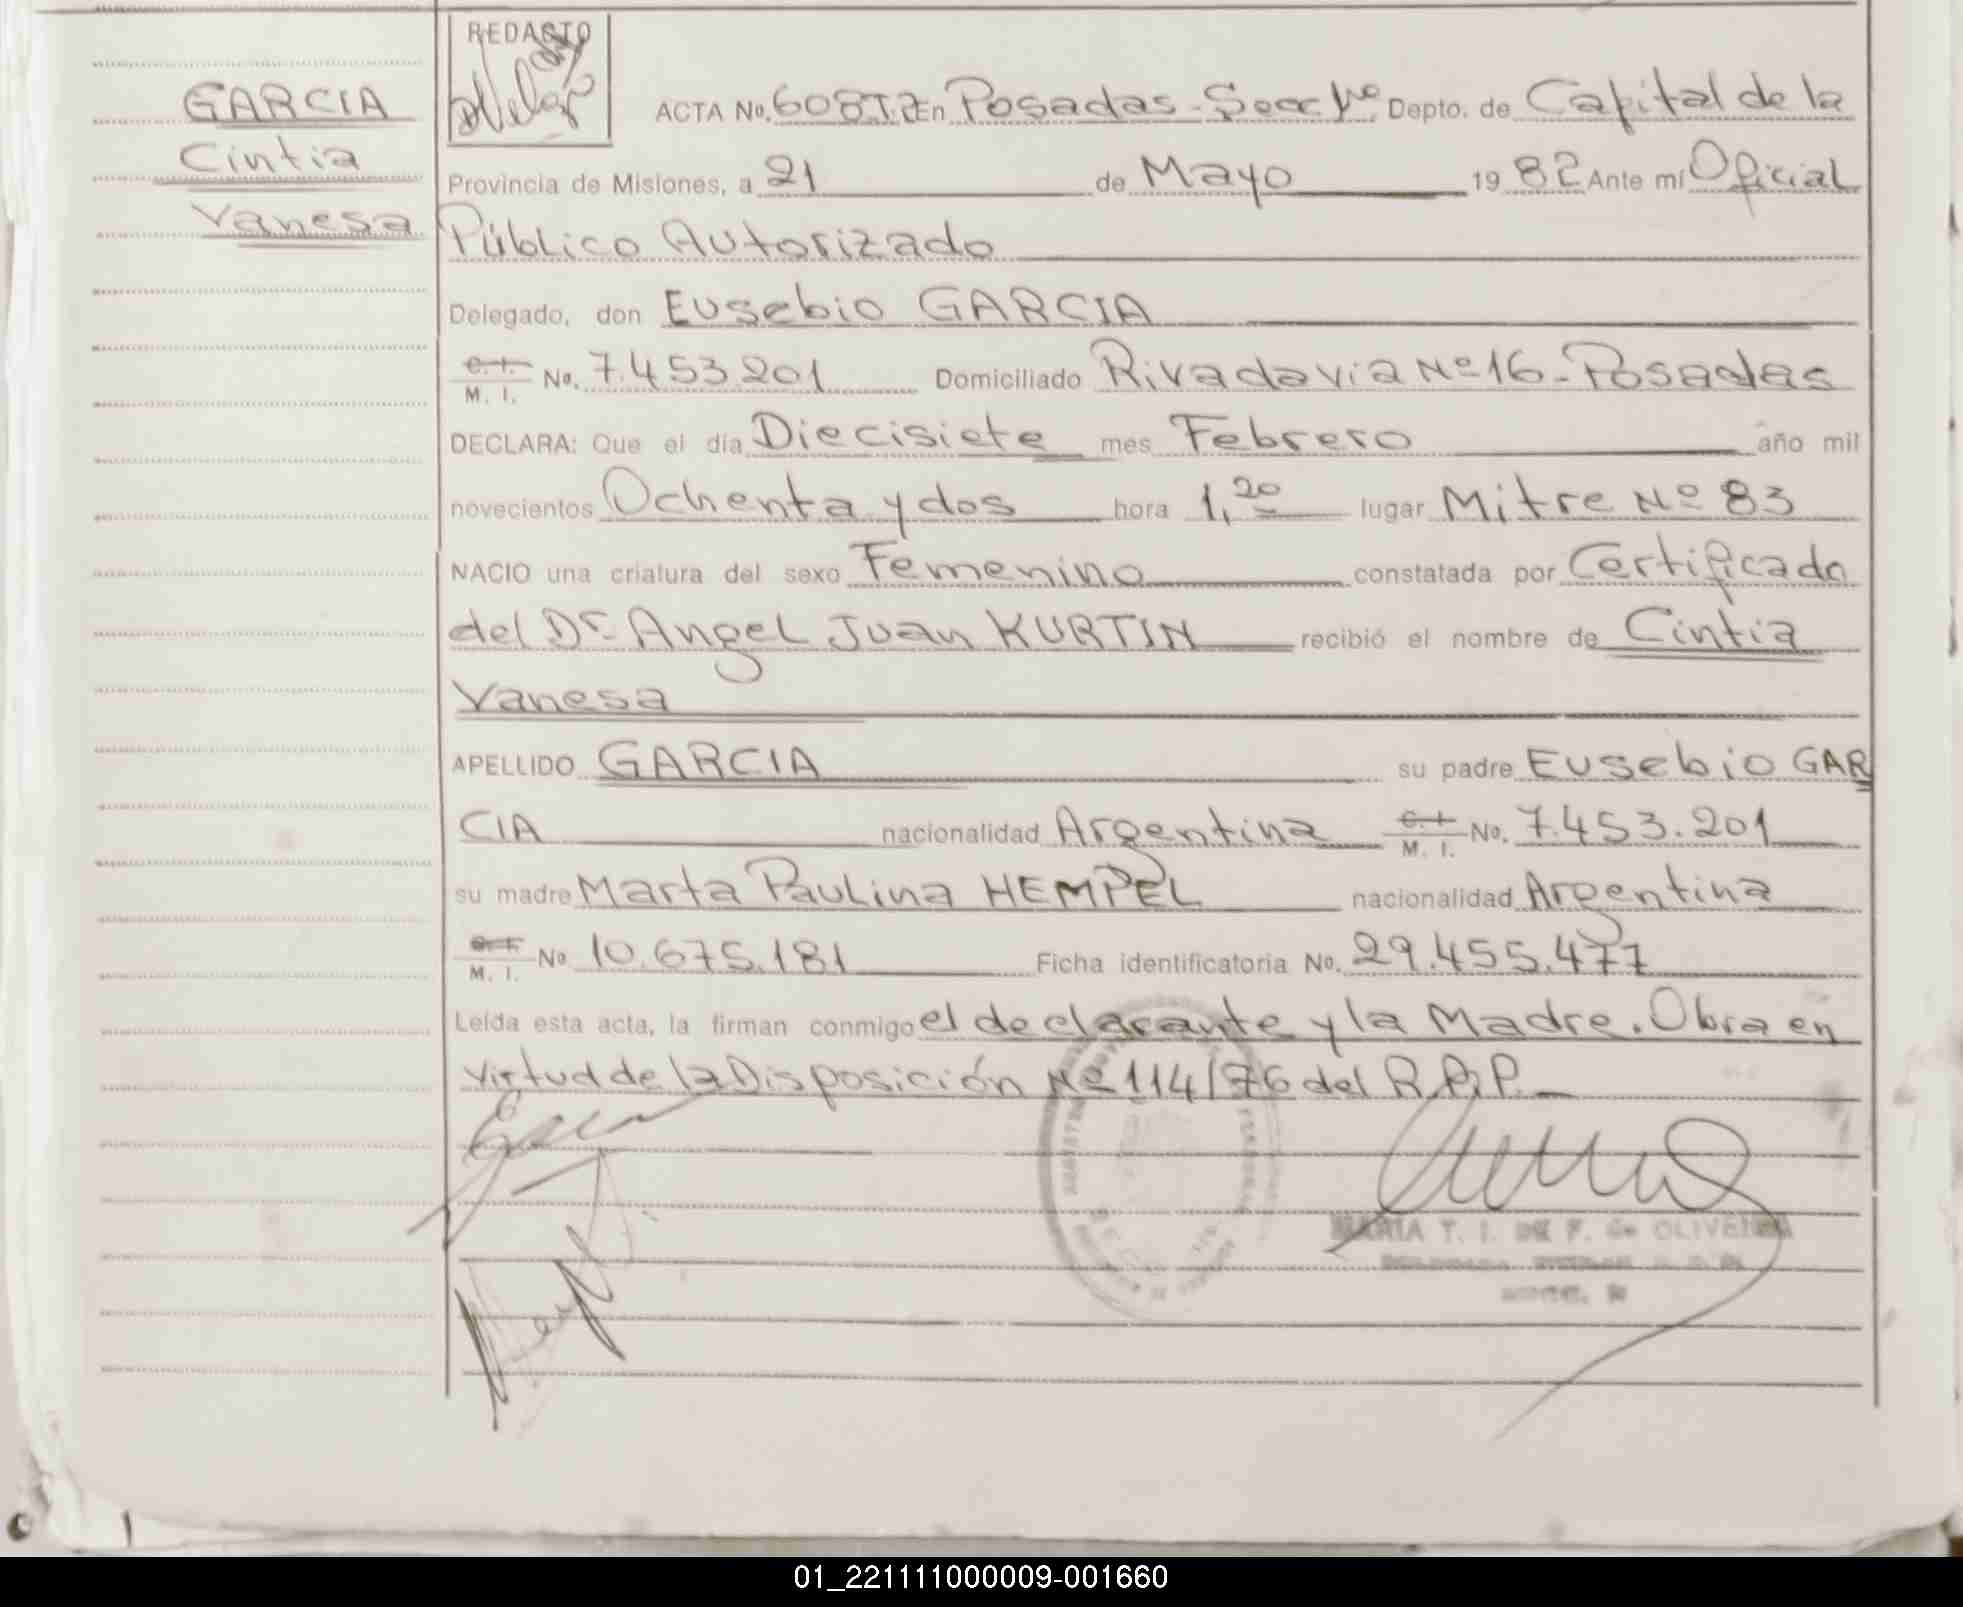 REDACTO
GARCIA
Cintia
Vanesa
ACTA No. 608T.2 En Posadas - Secc 1º Depto. de Capital de la
Provincia de Misiones, a 21 de Mayo 19 82 Ante mí Oficial
Público Autorizado
Delegado, don Eusebio GARCIA
C. I.
M. I. No. 7.453.201 Domiciliado Rivadavia Nº 16 - Posadas
DECLARA: Que el día Diecisiete mes Febrero año mil
novecientos Ochenta y dos hora 1,20 lugar Mitre Nº 83
NACIO una criatura del sexo Femenino constatada por Certificado
del Dr. Angel Juan KURTIN recibió el nombre de Cintia
Vanesa
APELLIDO GARCIA su padre Eusebio GAR
CIA nacionalidad Argentina C. I.
M. I. No. 7.453.201
su madre Marta Paulina HEMPEL nacionalidad Argentina
C. I.
M. I. No 10.675.181 Ficha identificatoria No. 29.455.477
Leída esta acta, la firman conmigo el declarante y la Madre. Obra en
virtud de la Disposición Nº 114/76 del R.P.P.
MARIA T. I. DE F. de OLIVEIRA
01_221111000009-001660